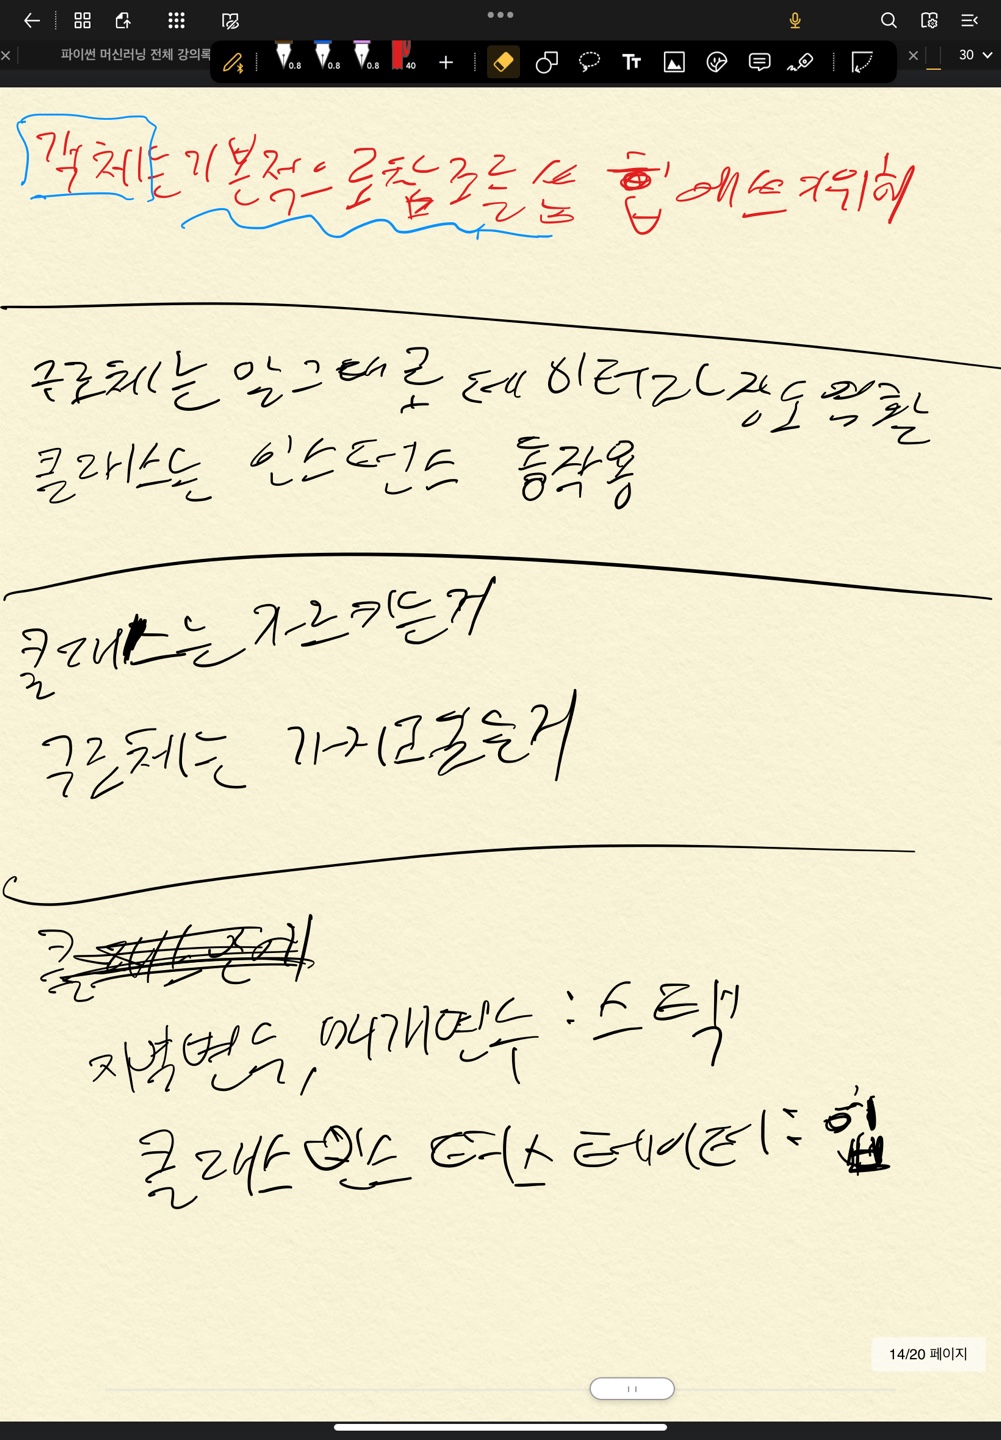 파이썬 머신러닝 전체 강의록
0.8 0.8 0.8 40
30
객체는 기본적으로 참조를 씀 힙 에쓰기위해
구조체는 말그대로 데이터 저장도 역활
클래스는 인스턴스 동작용
클래스는 가르키는거
구조체는 가지고있는거
지역변수, 매개변수 : 스택
클래스 인스턴스 데이터 : 힙
14/20 페이지